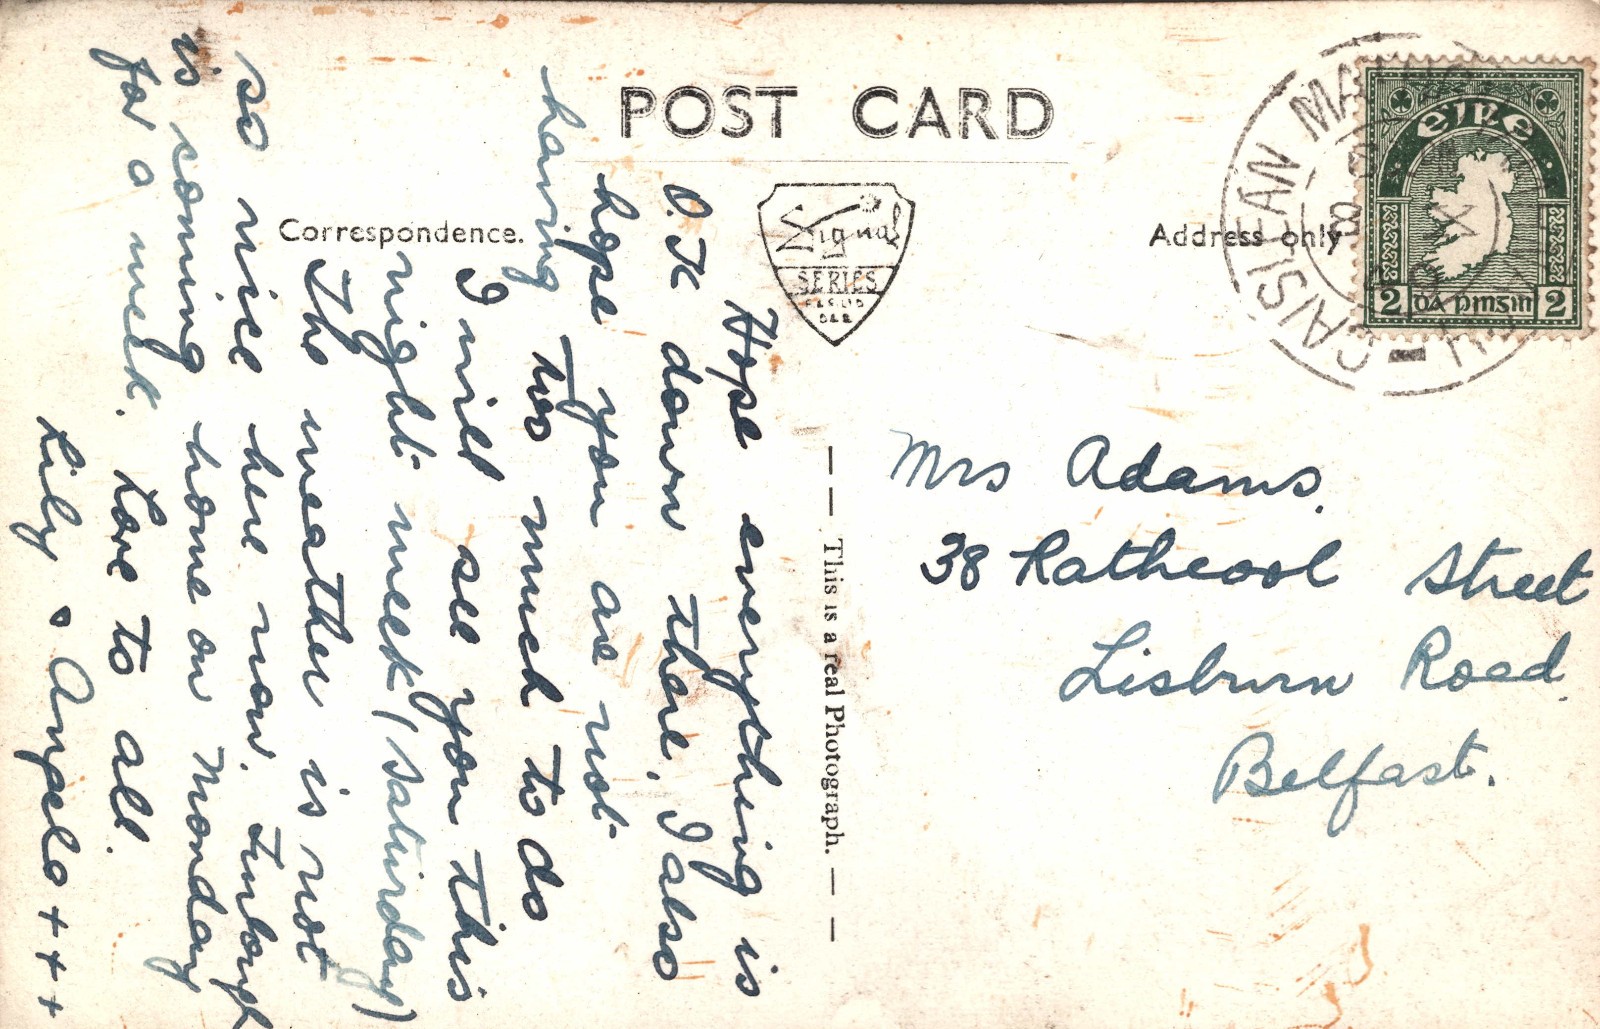 POST CARD
Correspondence.
Signal
SERIES
Address only
CAISLEÁN
éire
2 dá pinsin 2
This is a real Photograph.
Hope everything is
O.K down there. I also
hope you are not
having too much to do
I will see you this
night week (saturday)
The weather is not
so nice here now.
is coming home on Monday
for a week. Love to all.
Lily & Angela + + +
Mrs Adams.
38 Rathcool Street
Lisburn Road.
Belfast.